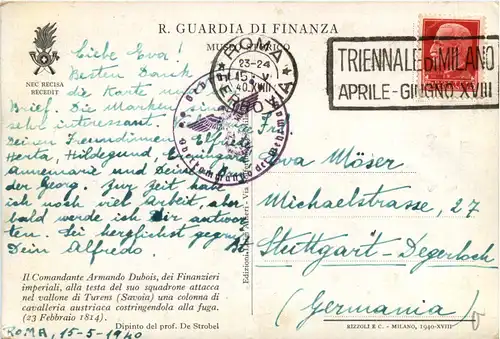 R. GUARDIA DI FINANZA
MUSEO STORICO
NEC RECISA
RECEDIT
ROMA
23-24
15·V
40·XVIII
TRIENNALE DI MILANO
APRILE-GIUGNO XVIII
Liebe Eva!
Besten Dank
die Karte und
Brief. Die Marken sind
sehr interessant.
Deinen Freundinnen Elfriede
Herta, Hildegund, Irmingard
Annemarie und Deine
der Georg. Zur Zeit habe
ich noch viel Arbeit, aber
bald werde ich Dir antwor-
ten. Sei herzlichst gegrüsst
Dein Alfredo
Eva Möser
Michaelstrasse, 27
Stuttgart-Degerloch
(Germania)
Il Comandante Armando Dubois, dei Finanzieri
imperiali, alla testa del suo squadrone attacca
nel vallone di Turens (Savoia) una colonna di
cavalleria austriaca costringendola alla fuga.
(23 Febbraio 1814).
Dipinto del prof. De Strobel
ROMA, 15-5-1940
RIZZOLI E C. - MILANO, 1940-XVIII